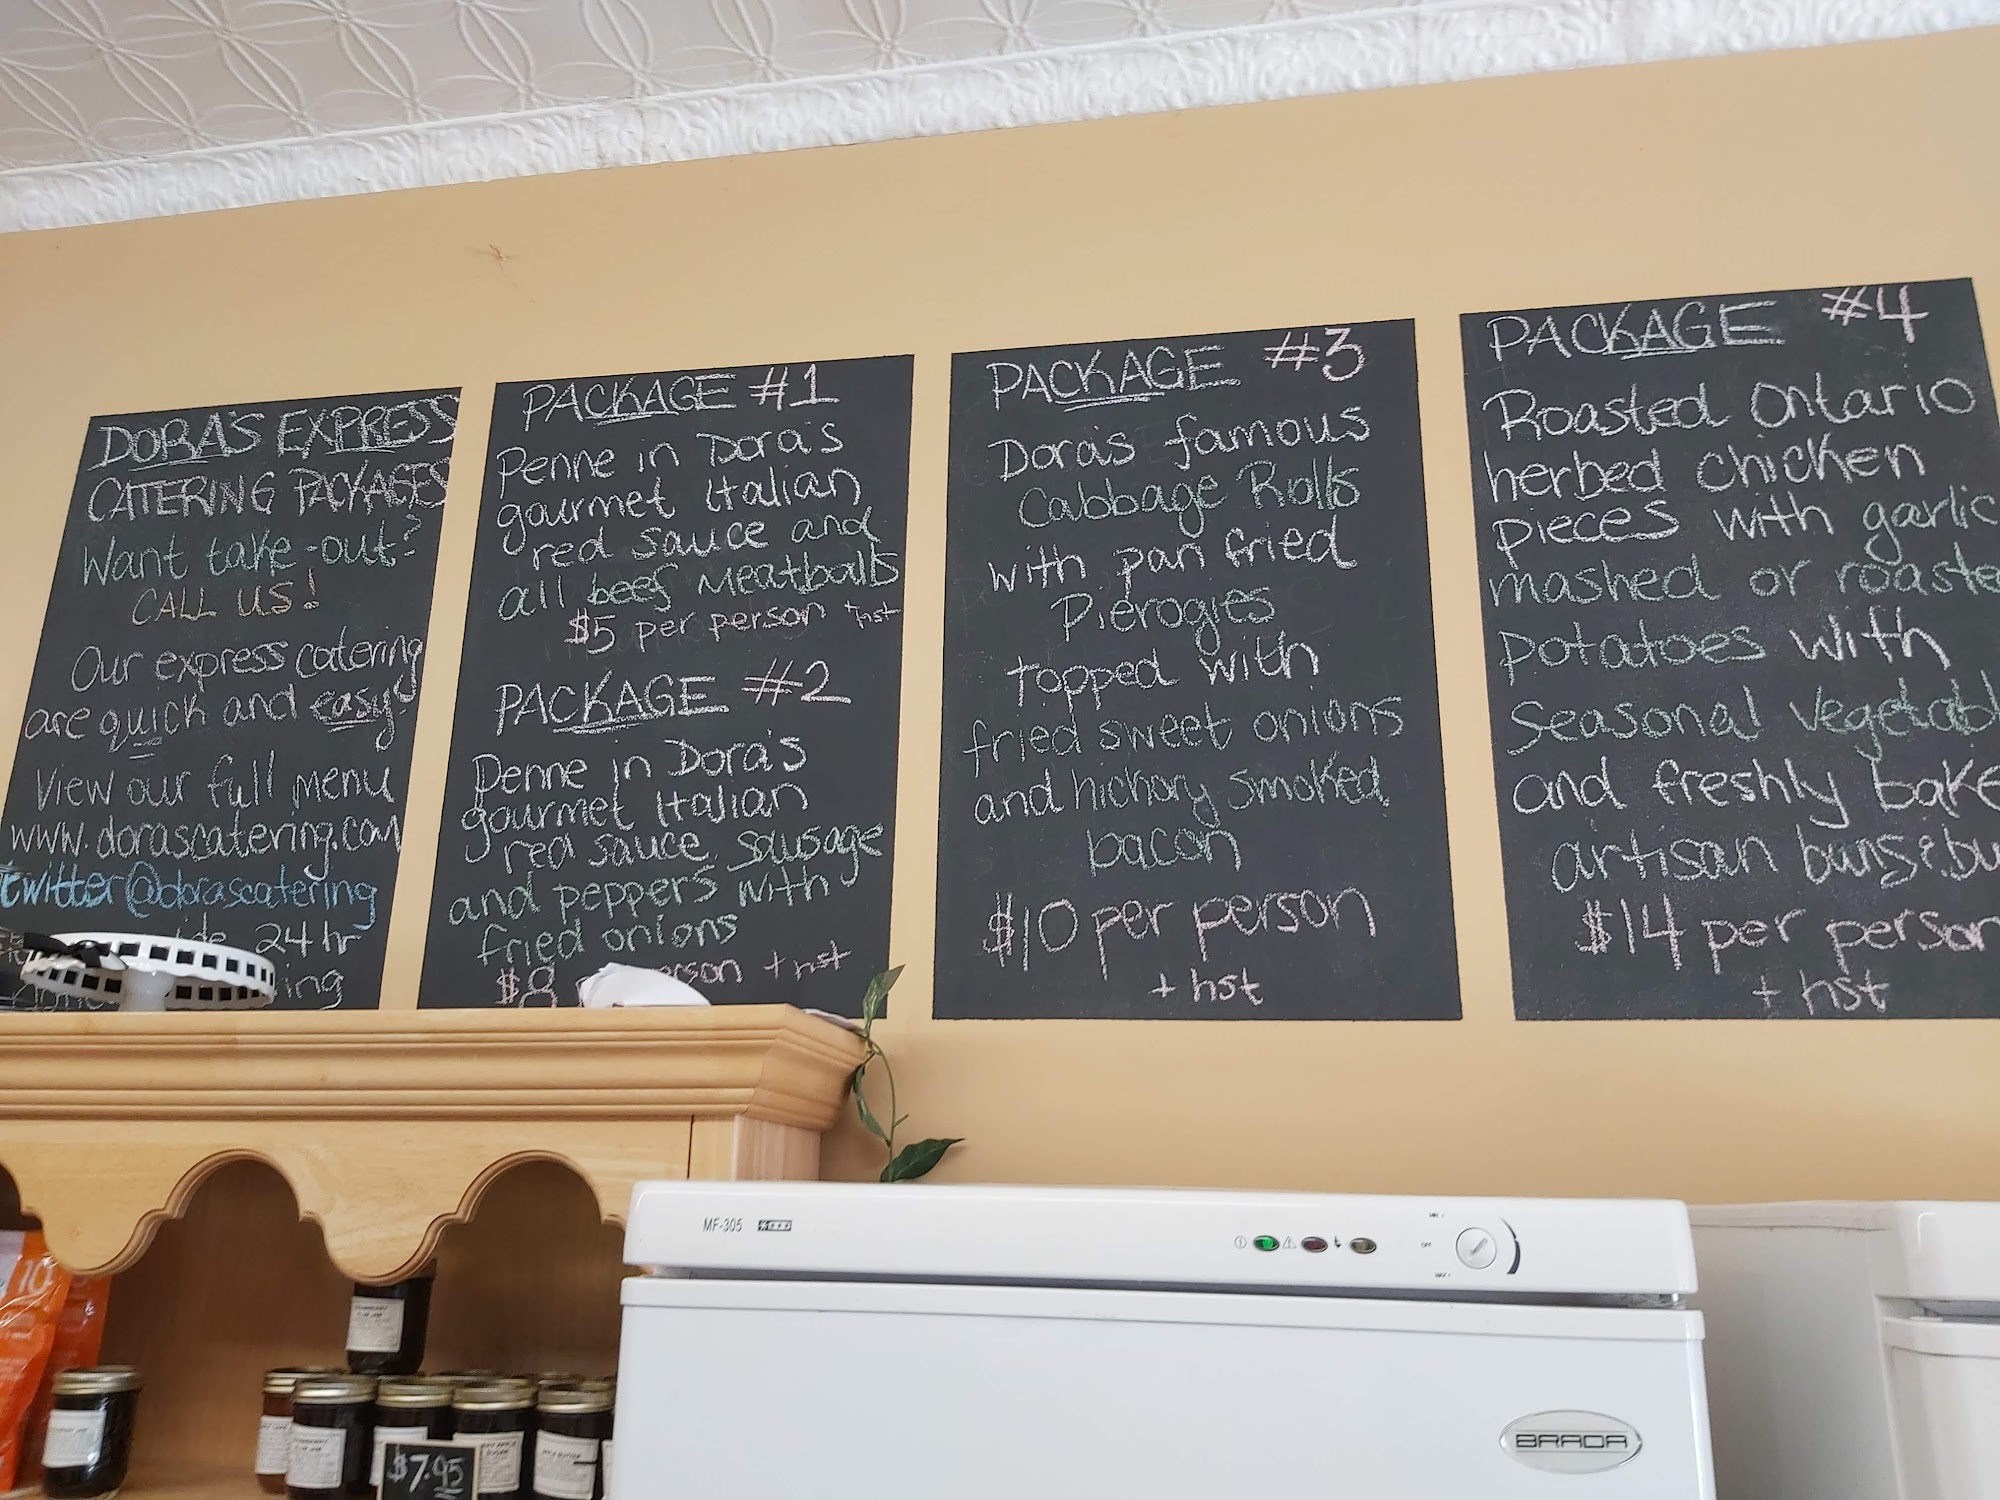 DORA'S EXPRESS
CATERING PACKAGES
Want take-out?
CALL US!
Our express catering
are quick and easy.
View our full menu
www.dorascatering.com
twitter@dorascatering
24hr
PACKAGE #1
Penne in Dora's
gourmet Italian
red sauce and
all beef Meatballs
$5 per person + hst
PACKAGE #2
Penne in Dora's
gourmet Italian
red sauce, sausage
and peppers with
fried onions
$8 + hst
PACKAGE #3
Dora's famous
Cabbage Rolls
with pan fried
Pierogies
topped with
fried sweet onions
and hickory smoked
bacon
$10 per person
+ hst
PACKAGE #4
Roasted Ontario
herbed chicken
pieces with garlic
mashed or roaste
potatoes with
Seasonal vegetabl
and freshly bake
artisan buns & bu
$14 per person
+ hst
MF-305
OFF
BRADA
$7.95